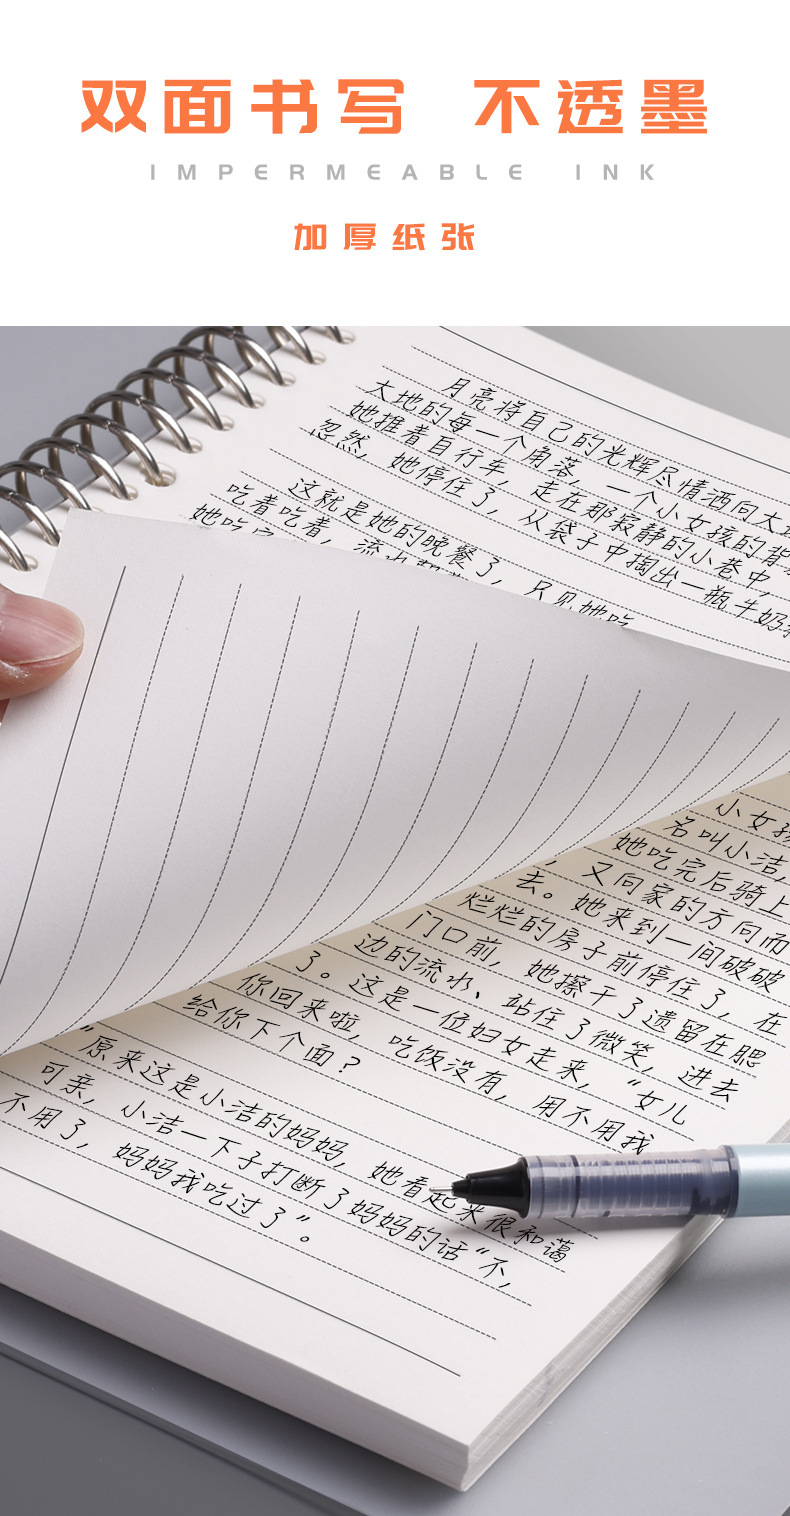 双面书写 不透墨
IMPERMEABLE INK
加厚纸张
月亮将自己的光辉尽情洒向大地
大地的每一个角落,一个小女孩的背
她推着自行车,走在那寂静的小巷中,
忽然,她停住了,从袋子中掏出一瓶牛奶
这就是她的晚餐了,只见她吃
吃着吃着,流水
她吃完
小女孩
名叫小洁,
她吃完后骑上
,又向家的方向而
去。她来到一间破破
烂烂的房子前停住了,在
门口前,她擦干了遗留在腮
边的流水、站住了微笑,进去
了。这是一位妇女走来,“女儿
你回来啦,吃饭没有,用不用我
给你下个面?
”原来这是小洁的妈妈,她看起来很和蔼
可亲,小洁一下子打断了妈妈的话“不,
不用了,妈妈我吃过了”。